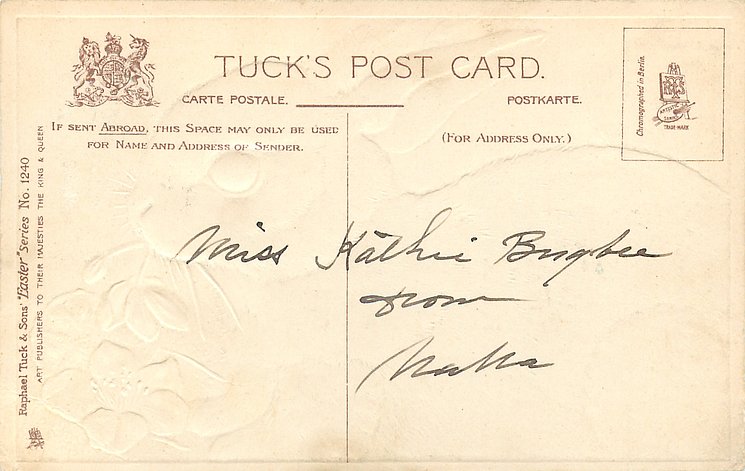 TUCK'S POST CARD.
CARTE POSTALE.
POSTKARTE.
IF SENT ABROAD, THIS SPACE MAY ONLY BE USED
FOR NAME AND ADDRESS OF SENDER.
(FOR ADDRESS ONLY.)
Chromographed in Berlin.
TRADE-MARK
Raphael Tuck & Sons' "Easter" Series No. 1240
ART PUBLISHERS TO THEIR MAJESTIES THE KING & QUEEN
Miss Kathie Bugbee
from